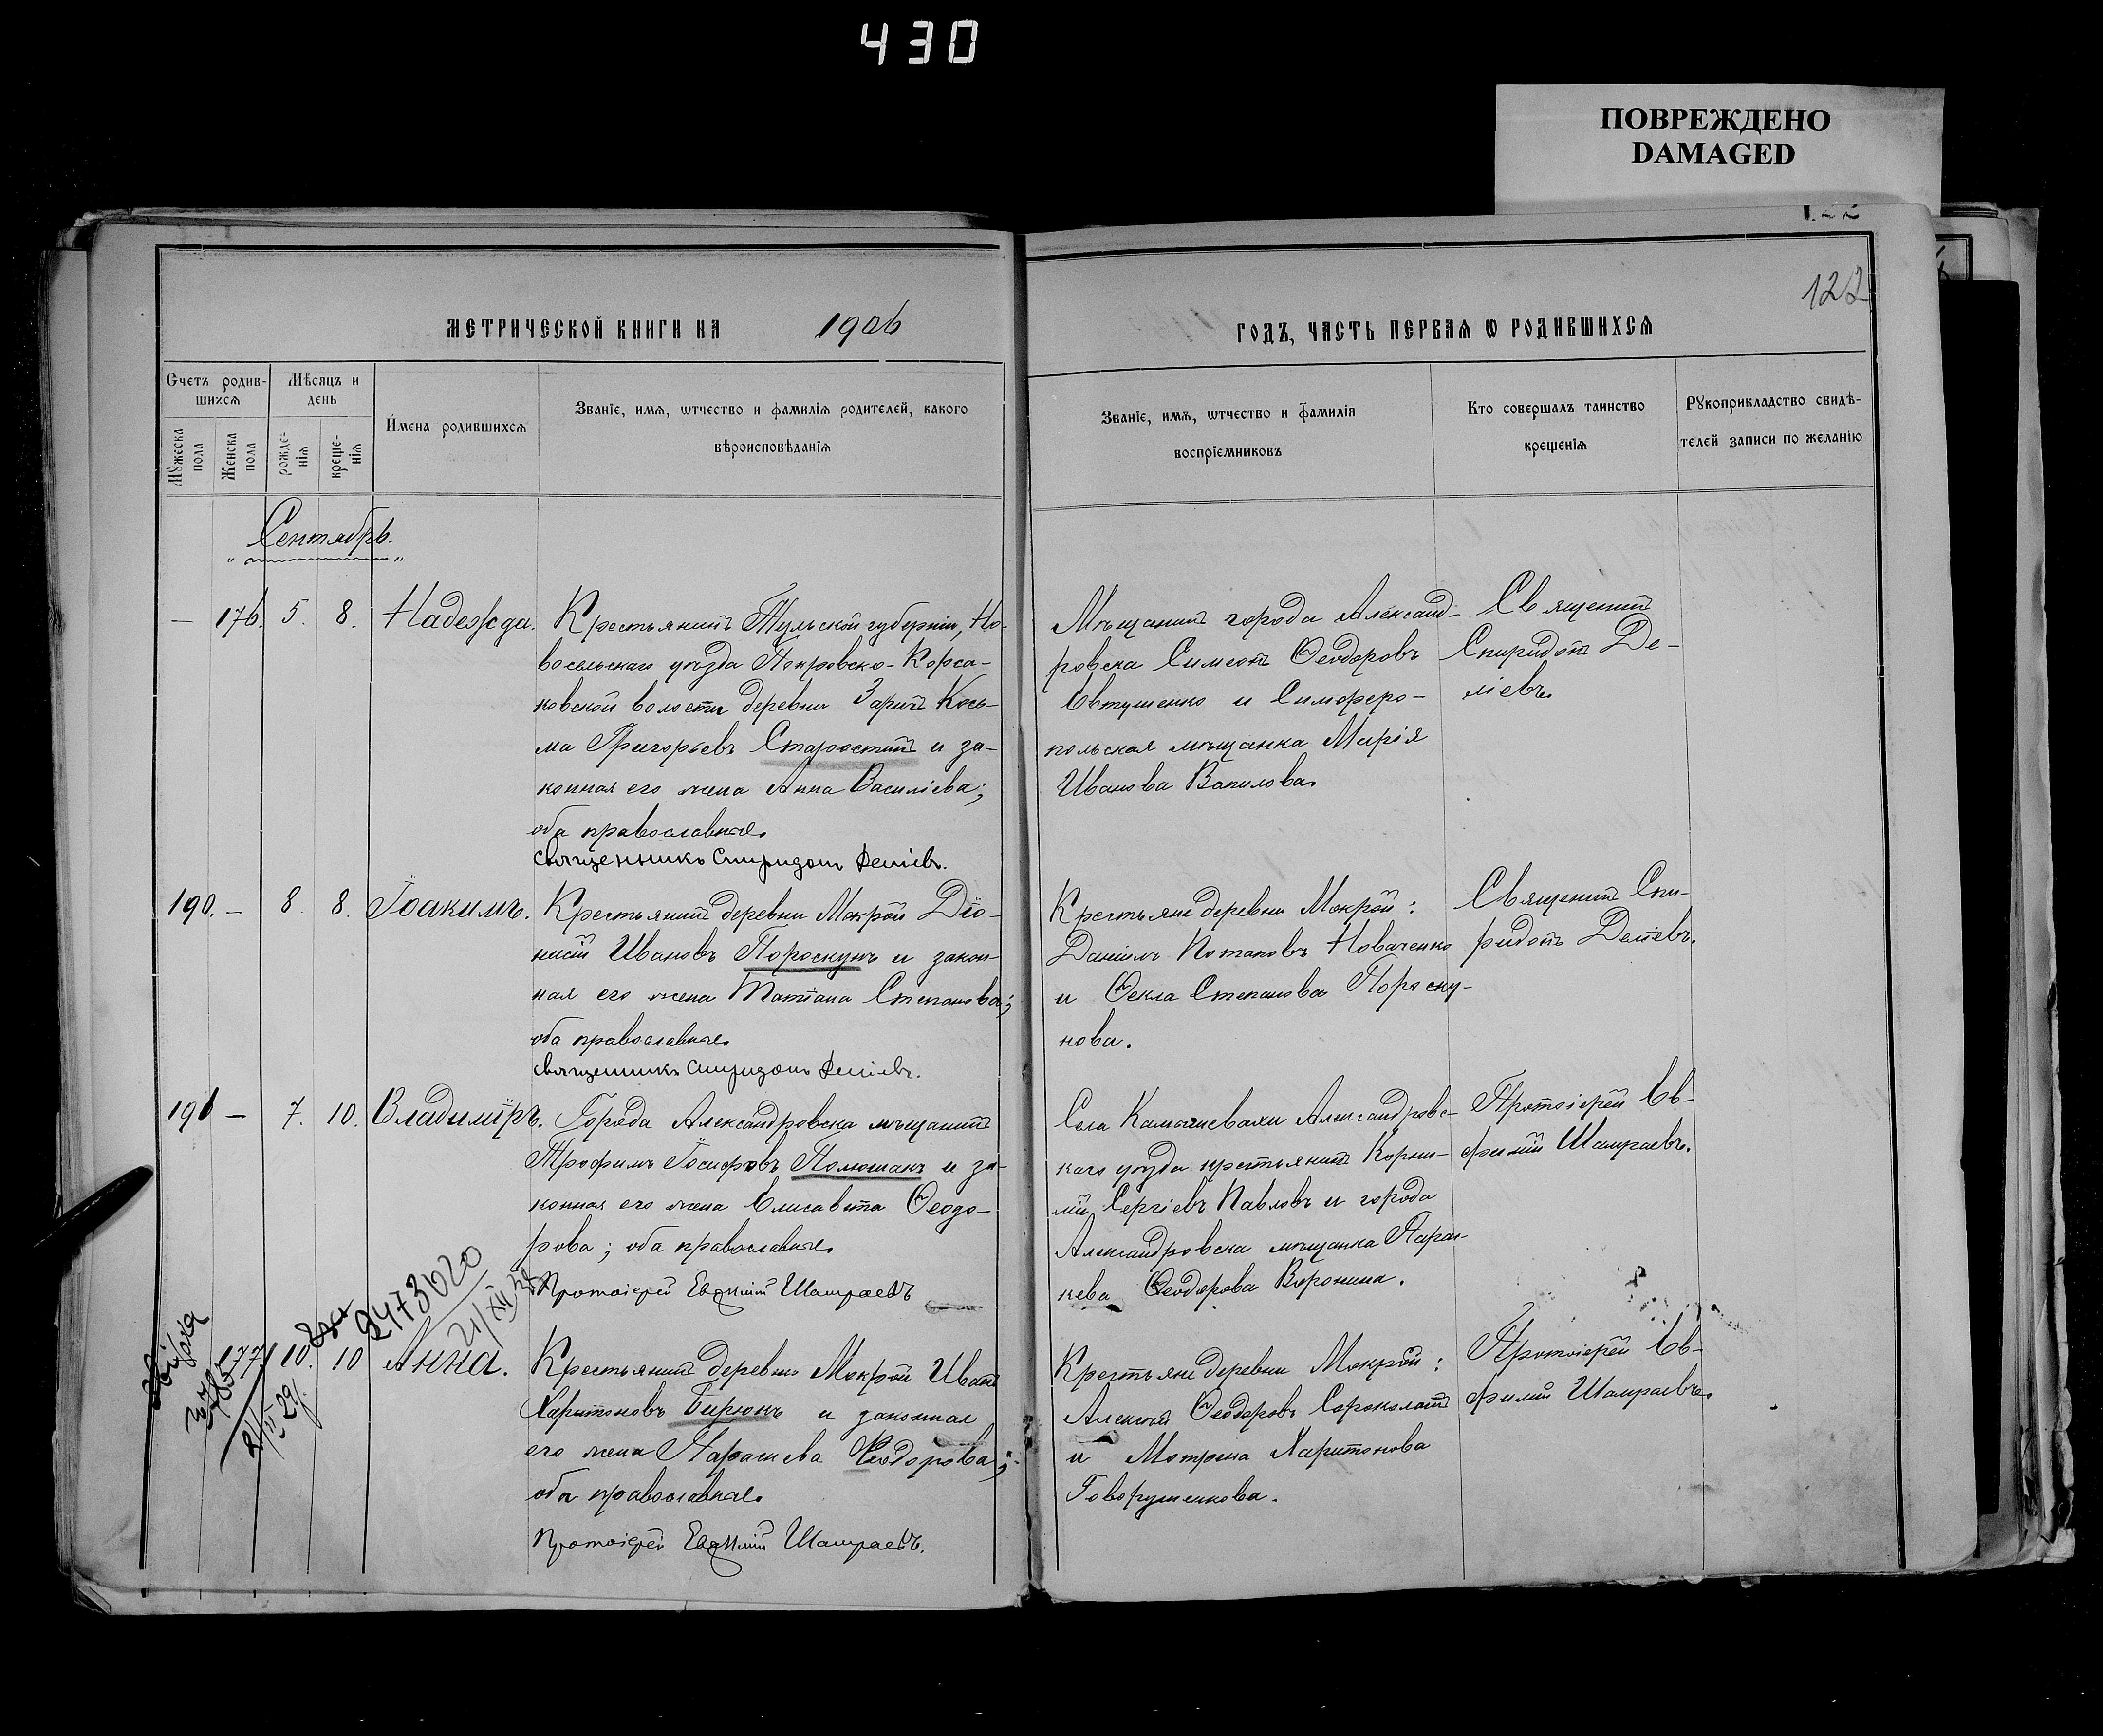 430
ПОВРЕЖДЕНО
DAMAGED
122
МЕТРИЧЕСКОЙ КНИГИ НА 1906
ГОДЪ, ЧАСТЬ ПЕРВАЯ Ѡ РОДИВШИХСЯ
Счетъ родив-
шихся
Мѣсяцъ и
день
Имена родившихся
Званіе, имя, ѡтчество и фамилія родителей, какого
вѣроисповѣданія
Мужеска
пола
Женска
пола
рожде-
нія
креще-
нія
Званіе, имя, ѡтчество и фамилія
воспріемниковъ
Кто совершалъ таинство
крещенія
Рукоприкладство свидѣ-
телей записи по желанію
Сентябрь.
— 176. 5. 8. Надежда.
Крестьянинъ Тульской губерніи, Но-
восельскаго уѣзда Покровско-Корса-
ковской волости деревни Кось-
ма Григорьевъ Старостинъ и за-
конная его жена Анна Василіева;
оба православные.
Священникъ Спиридонъ Деліевъ.
Мѣщанинъ города Александ-
ровска Симеонъ Ѳеодоровъ
Евтушенко и Симферо-
польская мѣщанка Марія
Иванова Вапилова.
Священникъ
Спиридонъ Де-
ліевъ.
190. — 8. 8. Іоакимъ.
Крестьянинъ деревни Мокрой Діо-
нисій Ивановъ Пороскунъ и закон-
ная его жена Татіана Степанова;
оба православные.
Священникъ Спиридонъ Деліевъ.
Крестьяне деревни Мокрой:
Даніилъ Потаповъ Новаченко
и Ѳекла Степанова Пороску-
нова.
Священникъ Спи-
ридонъ Деліевъ.
191 — 7. 10. Владиміръ.
Города Александровска мѣщанинъ
Трофимъ Іосифовъ Полюшанъ и за-
конная его жена Елисавета Ѳеодо-
рова; оба православные.
Протоіерей Евѳимій Шамраевъ
Села Камышевахи Александровс-
каго уѣзда крестьянинъ Корни-
лій Сергіевъ Павловъ и города
Александровска мѣщанка Парас-
кева Ѳеодорова Воронина.
Протоіерей Ев-
фимій Шамраевъ.
2473620
21/XII
177. 10. 10 Анна.
29г.
Крестьянинъ деревни Мокрой Иванъ
Харитоновъ Бирюкъ и законная
его жена Параскева Ѳеодорова;
оба православные.
Протоіерей Евѳимій Шамраевъ.
Крестьяне деревни Мокрой:
Алексій Ѳеодоровъ Сороколатъ
и Мотрона Харитонова
Говорушенкова.
Протоіерей Ев-
фимій Шамраевъ.